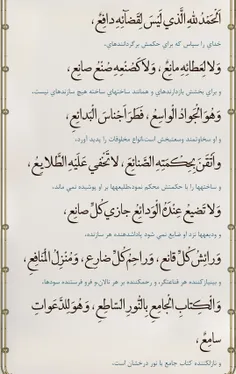 اَلْحَمْدُ لِلّٰهِ الَّذي لَيْسَ لِقَضآئِهِ دافِعٌ،
خدای را سپاس که برای حکمش برگرداننده‌ای،
وَلا لِعَطائِهِ مانِعٌ، وَلا كَصُنْعِهِ صُنْعُ صانِعٍ،
و برای بخشش بازدارنده‌ای و همانند ساخته‌اش ساخته هیچ سازنده‌ای نیست،
وَهُوَ الْجَوادُ الْواسِعُ، فَطَرَ اَجْناسَ الْبَدائِعِ،
و او سخاوتمند وسعت‌بخش است، انواع مخلوقات را پدید آورد،
واَتْقَنَ بِحِكْمَتِهِ الصَّنائِعَ، لا تَخْفي عَلَيْهِ الطَّلايِعُ،
و ساخته‌ها را با حکمتش محکم نمود، طلیعه‌ها بر او پوشیده نمی ماند،
وَلا تَضيعُ عِنْدَهُ الْوَدائِعُ، جازي كُلِّ صانِعٍ،
و ودیعه‌ها نزد او ضایع نمی شود پاداش‌دهنده هر سازنده،
وَرائِشُ كُلِّ قانِعٍ، وَراحِمُ كُلِّ ضارِعٍ، وَمُنْزِلُ الْمَنافِعِ،
و بی‌نیازکننده هر قناعتگر، و رحم‌کننده بر هر نالان، و فرو فرستنده سودها،
وَالْكِتابِ الْجامِعِ بِالنُّورِ السّاطِعِ، وَهُوَ لِلدَّعَواتِ
سامِعٌ،
و نازل‌کننده کتاب جامع با نور درخشان است،